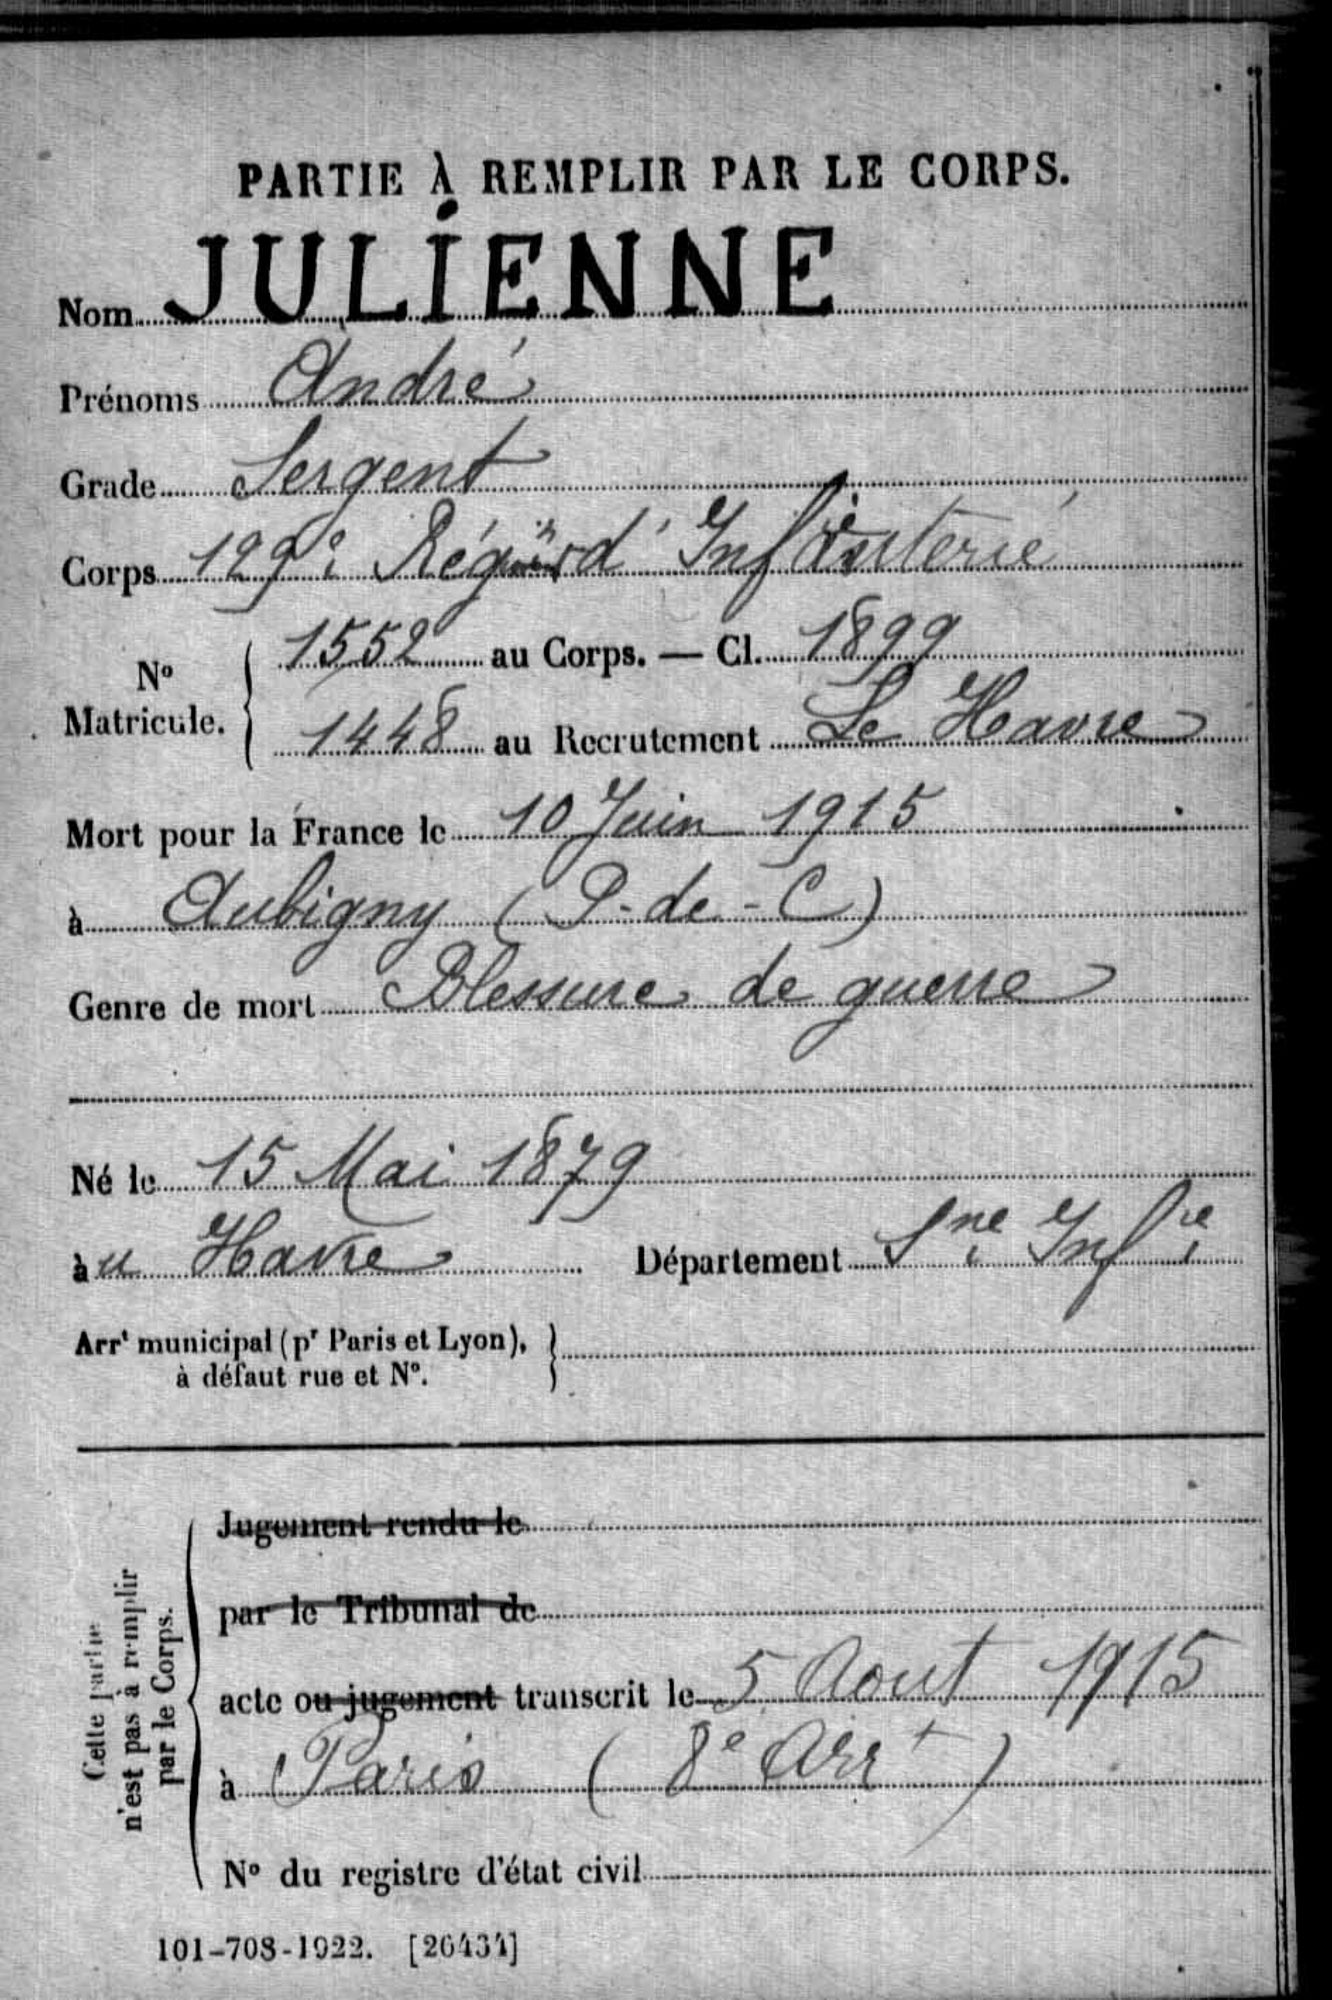 PARTIE À REMPLIR PAR LE CORPS.
Nom JULIENNE
Prénoms André
Grade Sergent
Corps 129e Régim d'Infanterie
No Matricule. 1552 au Corps. — Cl. 1899
1448 au Recrutement Le Havre
Mort pour la France le 10 Juin 1915
à Aubigny (P-de-C)
Genre de mort Blessure de guerre
Né le 15 Mai 1879
àu Havre Département Sne Infre
Arrt municipal (pr Paris et Lyon),
à défaut rue et N°.
Cette partie
n'est pas à remplir
par le Corps.
Jugement rendu le
par le Tribunal de
acte ou jugement transcrit le 5 Aout 1915
à Paris (8e Arrt)
N° du registre d'état civil
101-708-1922. [26434]